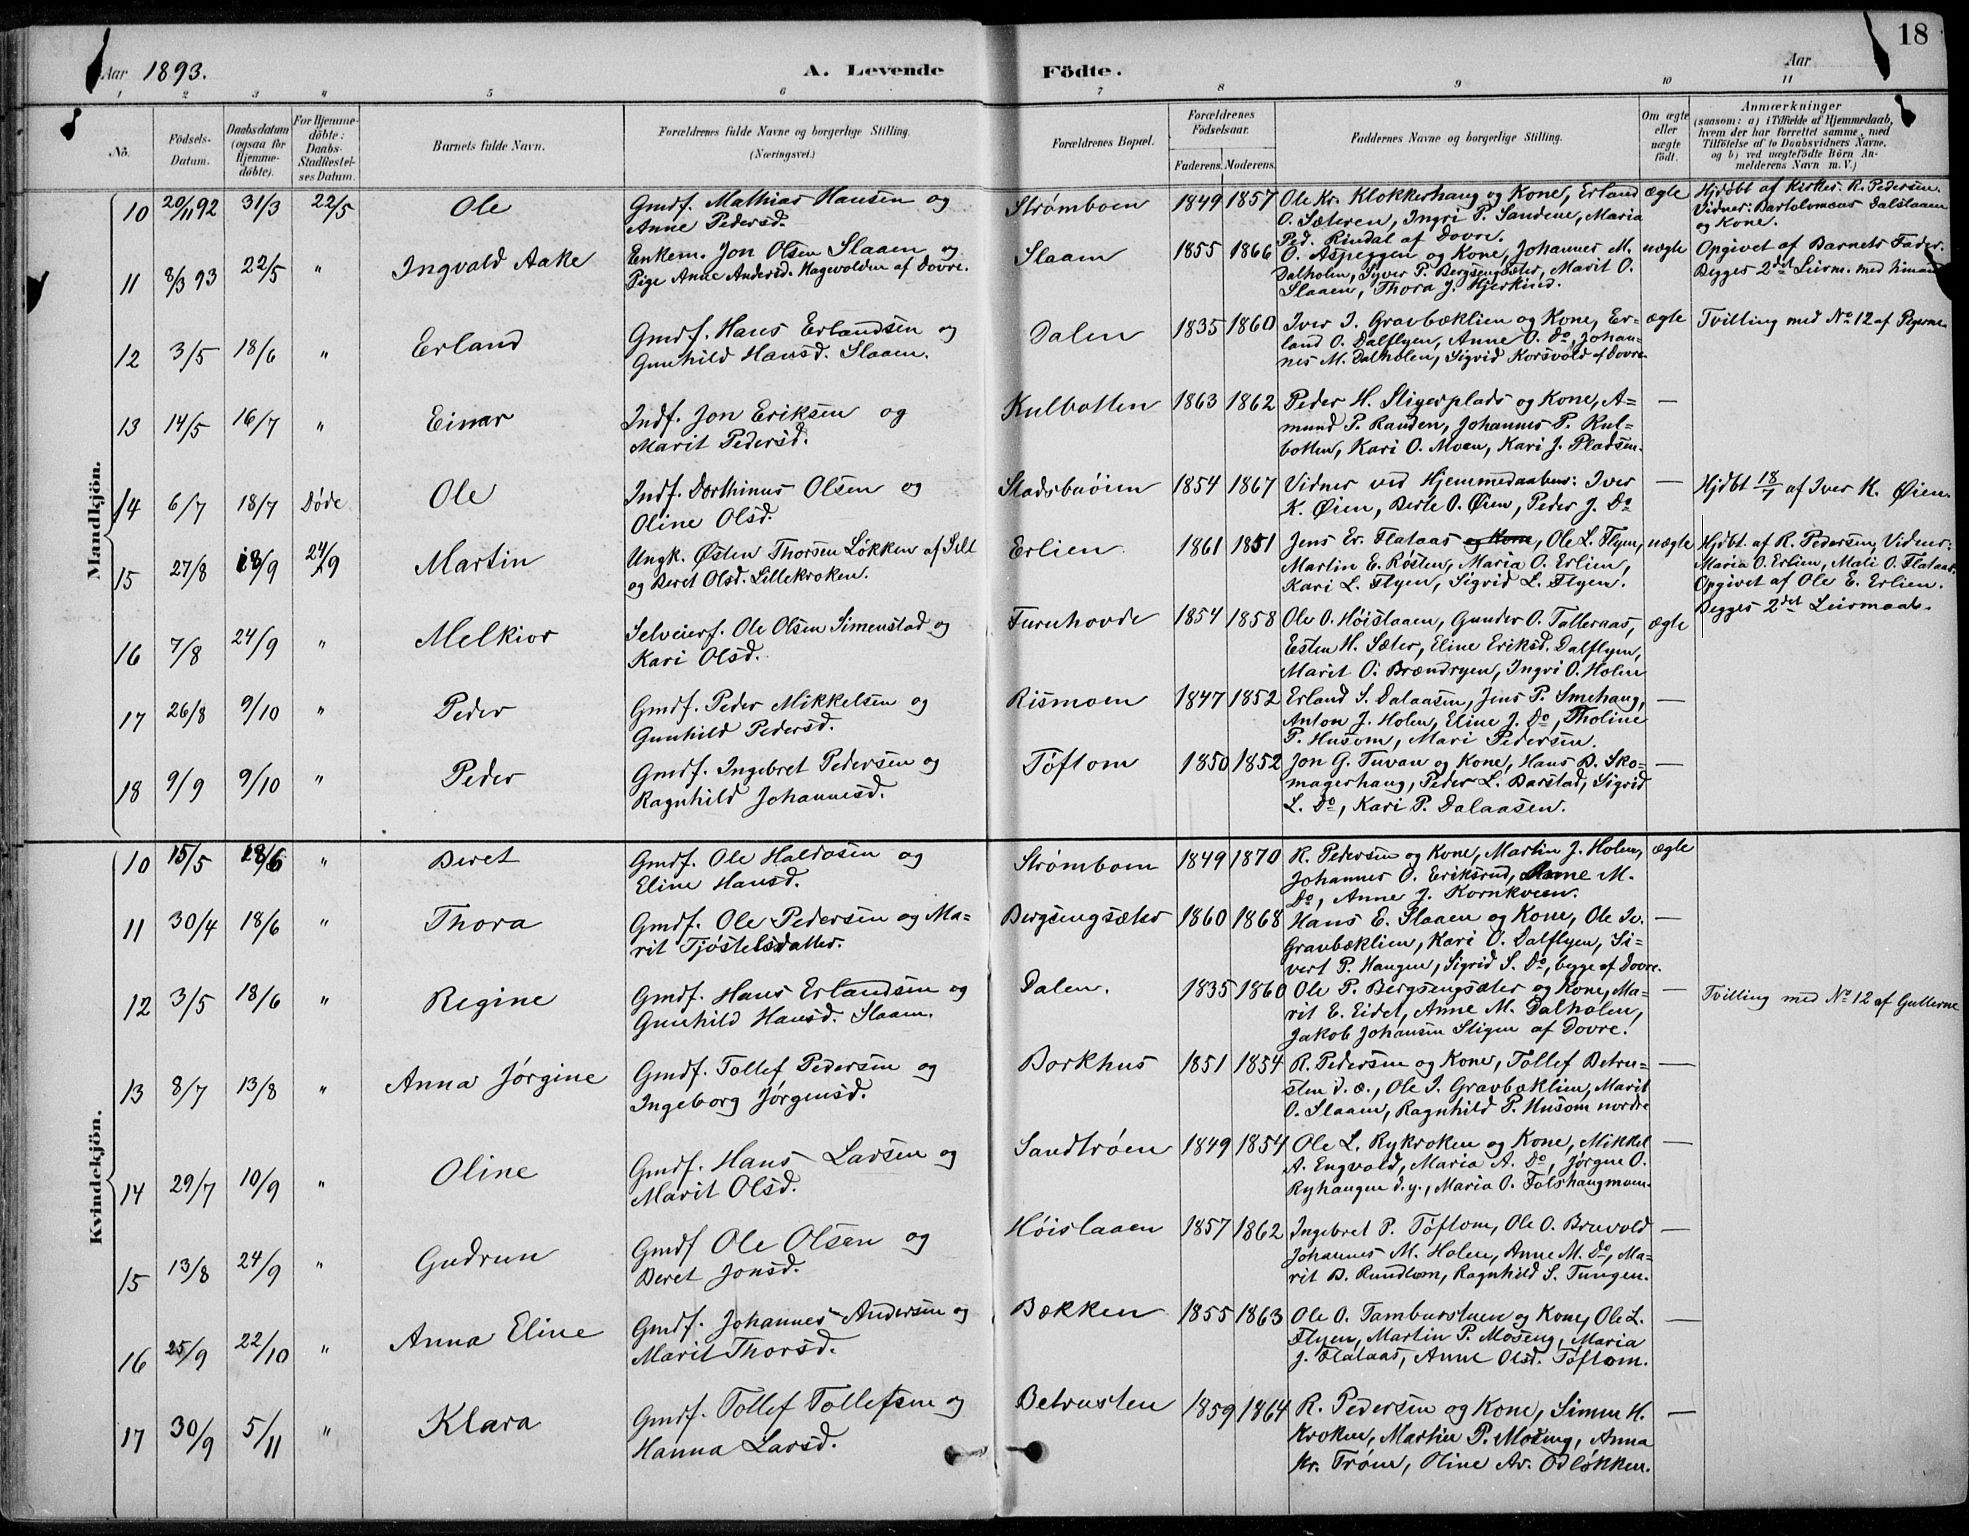 18
Aar 1893.
A. Levende Födte.
Aar
1 2 3 " 5 6 7 8 9 10 11
No.
Födsels-Datum.
Daabsdatum (ogsaa for Hjemme-döbte).
For Hjemme-döbte: Daabs-Stadfæstel-ses Datum.
Barnets fulde Navn.
Forældrenes fulde Navne og borgerlige Stilling. (Næringsvei.)
Forældrenes Bopæl.
Forældrenes Födselsaar.
Faderens. Moderens.
Faddernes Navne og borgerlige Stilling.
Om ægte eller uægte födt.
Anmærkninger
(saasom: a) i Tilfælde af Hjemmedaab,
hvem der har forrettet samme, med
Tilföielse af to Daabsvidners Navne,
og b) ved uægtefödte Börn An-
melderens Navn m. V.)
Mandkjön.
10 20/11 92 31/3 22/5 Ole
Gmdf. Mathias Hansen og
Anne Pedersd.
Strømboen 1849 1857
Ole Kr. Klokkerhaug og Kone, Erland
O. Sæteren, Ingri P. Sandene, Maria
Ped. Rindal af Dovre.
ægte
Hjdøbt af Kirkes. R. Pedersen.
Vidner: Bartolomæus Dalslaaen
og Kone.
11 8/3 93 22/5 " Ingvald Aake
Enkem. Jon Olsen Slaaen og
Pige Anne Andersd. Hagevolden af Dovre.
Slaaen 1855 1866
O. Aspeggen og Kone, Johannes M.
Dalholen, Syver P. Bergsengsæter, Marit O.
Slaaen, Thora J. Hjerkind.
uægte
Opgivet af Barnets Fader.
Begges 2det Leierm. med hinand
12 3/5 18/6 " Erland
Gmdf. Hans Erlandsen og
Gunhild Hansd. Slaaen.
Dalen 1835 1860
Iver I. Gravbæklien og Kone, Er-
land O. Dalflyen, Anne O. Do, Johan-
nes M. Dalholen, Sigrid Korsvold af Dovre
ægte
Tvilling med No 12 af Pigerne
13 14/5 16/7 " Einar
Indf. Jon Eriksen og
Marit Pedersd.
Kulbotten 1863 1862
Peder H. Stigerplads og Kone, A-
mund P. Randen, Johannes P. Kul-
botten, Kari O. Moen, Kari J. Pladsen.
—
14 6/7 18/7 Døde Ole
Indf. Dorthinus Olsen og
Oline Olsd.
Stadsbuøien 1854 1867
Vidner ved Hjemmedaaben: Iver
K. Øien, Berte O. Øien, Peder J. Do
—
Hjdbt 18/7 af Iver K. Øien.
15 27/8 18/9 24/9 Martin
Ungk. Østen Thorsen Løkken af Sell
og Beret Olsd. Lillekroken.
Erlien 1861 1851
Jens Er. Flataas og Kone, Ole L. Flyen,
Martin E. Røsten, Maria O. Erlien,
Kari L. Flyen, Sigrid L. Flyen.
uægte
Hjdbt. af R. Pedersen, Vidner:
Maria O. Erlien, Mali O. Flataas.
Opgivet af Ole E. Erlien.
Begges 2det Leiermaal.
16 7/8 24/9 " Melkior
Selveierf. Ole Olsen Simenstad og
Kari Olsd.
Furuhovde 1854 1858
Ole O. Høislaaen, Gunder O. Tolleraas,
Esten H. Sæter, Eline Eriksd. Dalflyen,
Marit O. Brændryen, Ingri O. Holen
ægte
17 26/8 9/10 " Peder
Gmdf. Peder Mikkelsen og
Gunhild Pedersd.
Rismoen 1847 1852
Erland S. Dalaasen, Jens P. Smehaug,
Anton J. Holen, Eline J. Do, Tholine
P. Husom, Mari Pedersen.
—
18 9/9 9/10 " Peder
Gmdf. Ingebret Pedersen og
Ragnhild Johannesd.
Tøftom 1850 1852
Jon G. Tuvan og Kone, Hans B. Sko-
magerhaug, Peder L. Barstad, Sigrid
L. Do, Kari P. Dalaasen.
—
Kvindekjön.
10 15/5 18/6 " Beret
Gmdf. Ole Haldosen og
Eline Hansd.
Strømboen 1849 1870
R. Pedersen og Kone, Martin J. Holen,
Johannes O. Eriksrud, Anne M.
Do, Anne J. Kornkveen.
ægte
11 30/4 18/6 " Thora
Gmdf. Ole Pedersen og Ma-
rit Tjøstelsdatter.
Bergsengsæter 1860 1868
Hans E. Slaaen og Kone, Ole Iv.
Gravbæklien, Kari O. Dalflyen, Si-
vert P. Haugen, Sigrid S. Do, begge af Dovre.
—
12 3/5 18/6 " Regine
Gmdf. Hans Erlandsen og
Gunhild Hansd. Slaaen.
Dalen. 1835 1860
Ole P. Bergsengsæter og Kone, Ma-
rit E. Eidet, Anne M. Dalholen,
Jakob Johansen Stigen af Dovre.
—
Tvilling med No 12 af Gutterne
13 8/7 13/8 " Anna Jørgine
Gmdf. Tollef Pedersen og
Ingeborg Jørgensd.
Borkhus 1851 1854
R. Pedersen og Kone, Tollef Betru-
sten d. æ., Ole I. Gravbæklien, Marit
O. Slaaen, Ragnhild P. Husom nordre
—
14 29/7 10/9 " Oline
Gmdf. Hans Larsen og
Marit Olsd.
Sandtrøen 1849 1854
Ole L. Rykroken og Kone, Mikkel
A. Engvold, Maria A. Do, Jørgne O.
Ryhaugen d. y., Maria O. Folshaugmoen.
—
15 13/8 24/9 " Gudrun
Gmdf Ole Olsen og
Beret Jonsd.
Høislaaen 1857 1862
Ingebret P. Tøftom, Ole O. Bruvold
Johannes M. Holen, Anne M. Do, Ma-
rit B. Rundtom, Ragnhild S. Tungen.
—
16 25/9 22/10 " Anna Eline
Gmdf. Johannes Andersen og
Marit Thorsd.
Bækken 1855 1863
Ole O. Tamburstuen og Kone, Ole L.
Flyen, Martin P. Moseng, Maria
J. Flataas, Anne Olsd. Tøftom.
—
17 30/9 5/11 " Klara
Gmdf. Tollef Tollefsen og
Hanna Larsd.
Betrusten 1859 1864
R. Pedersen og Kone, Simen H.
Kroken, Martin P. Moseng, Anna
Kr. Trøen, Oline Ar. Odløkken.
—